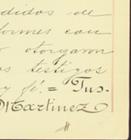 didos de
formes con
otorgaron
los testigos
y fe. = Jus.
Martinez